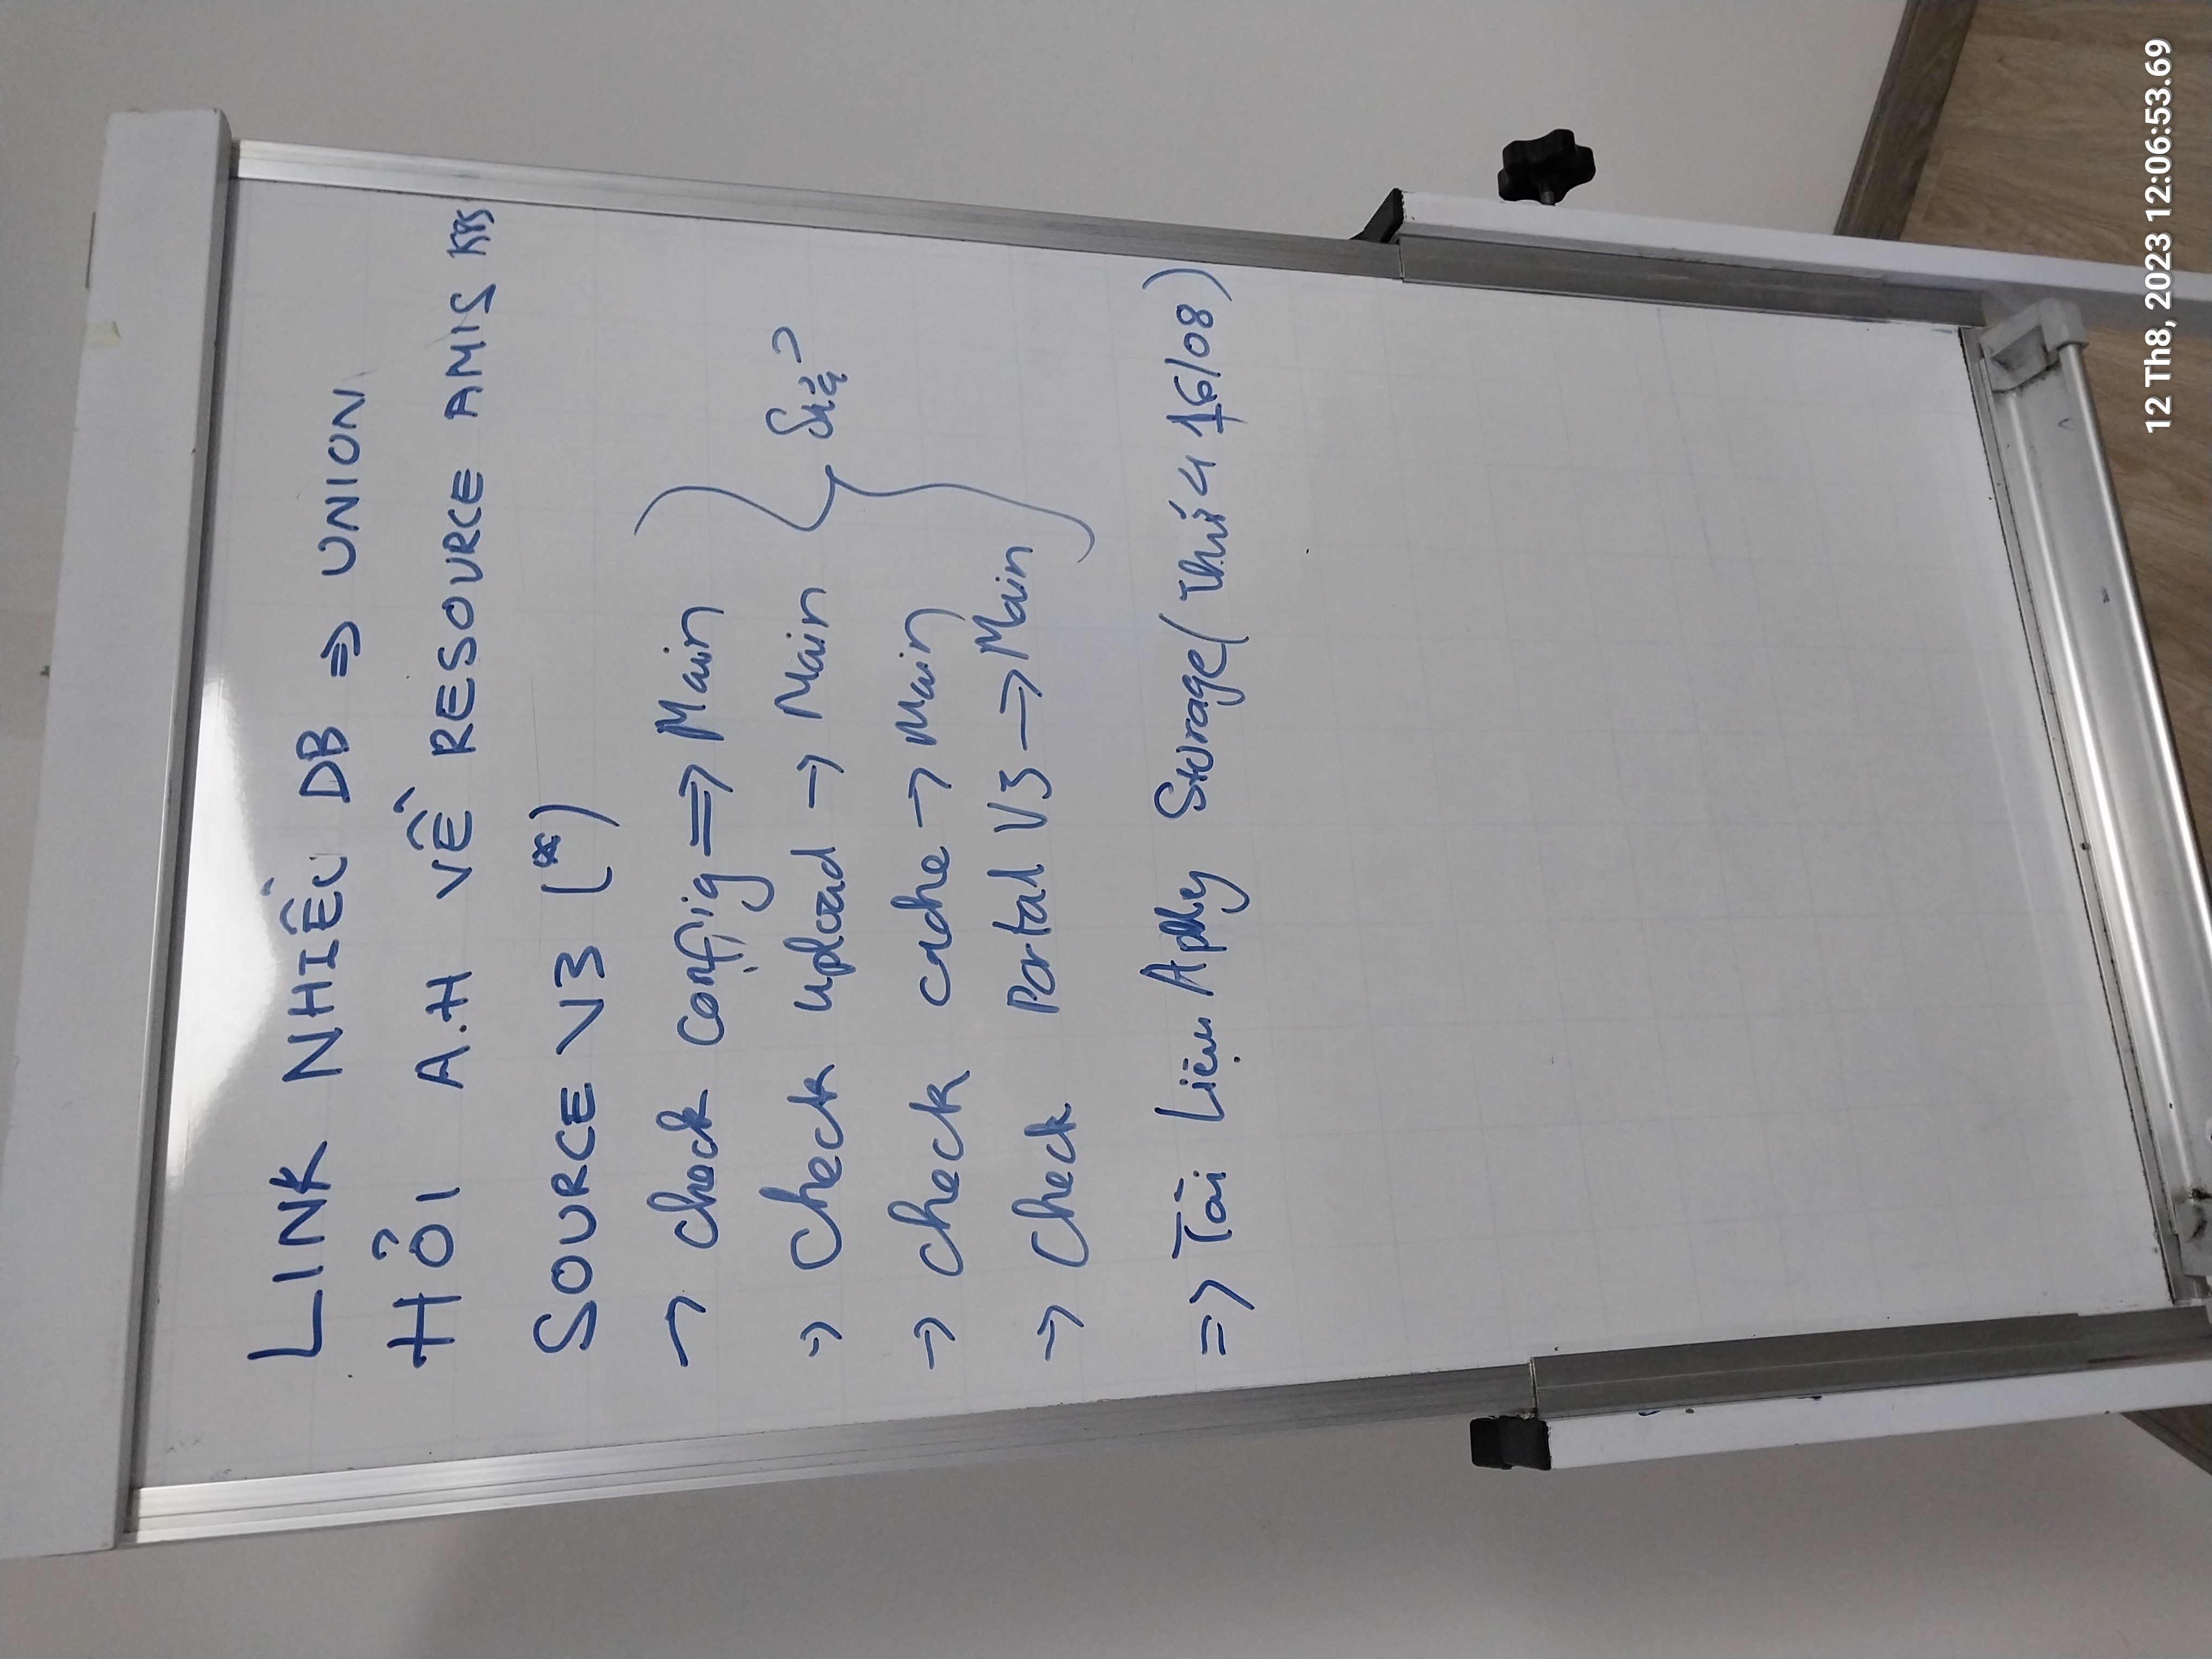 LINK NHIỀU DB => UNION
HỎI A.H VỀ RESOURCE AMIS K8S
SOURCE V3 (*)
-> check config => Main
-> check upload -> Main
-> check cache -> Main
-> check Portal V3 -> Main
=> Tài Liệu Apply Storage (Thứ 4 16/08)
12 Th8, 2023 12:06:53.69